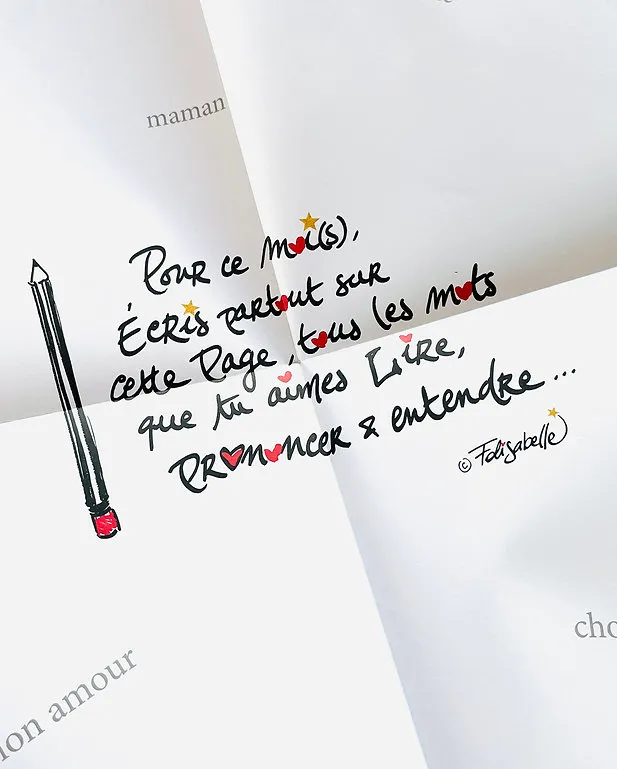 maman
Pour ce moi(s),
Écris partout sur
cette Page, tous les mots
que tu aimes Lire,
PRONONCER & entendre ...
© Folisabelle
cho
mon amour